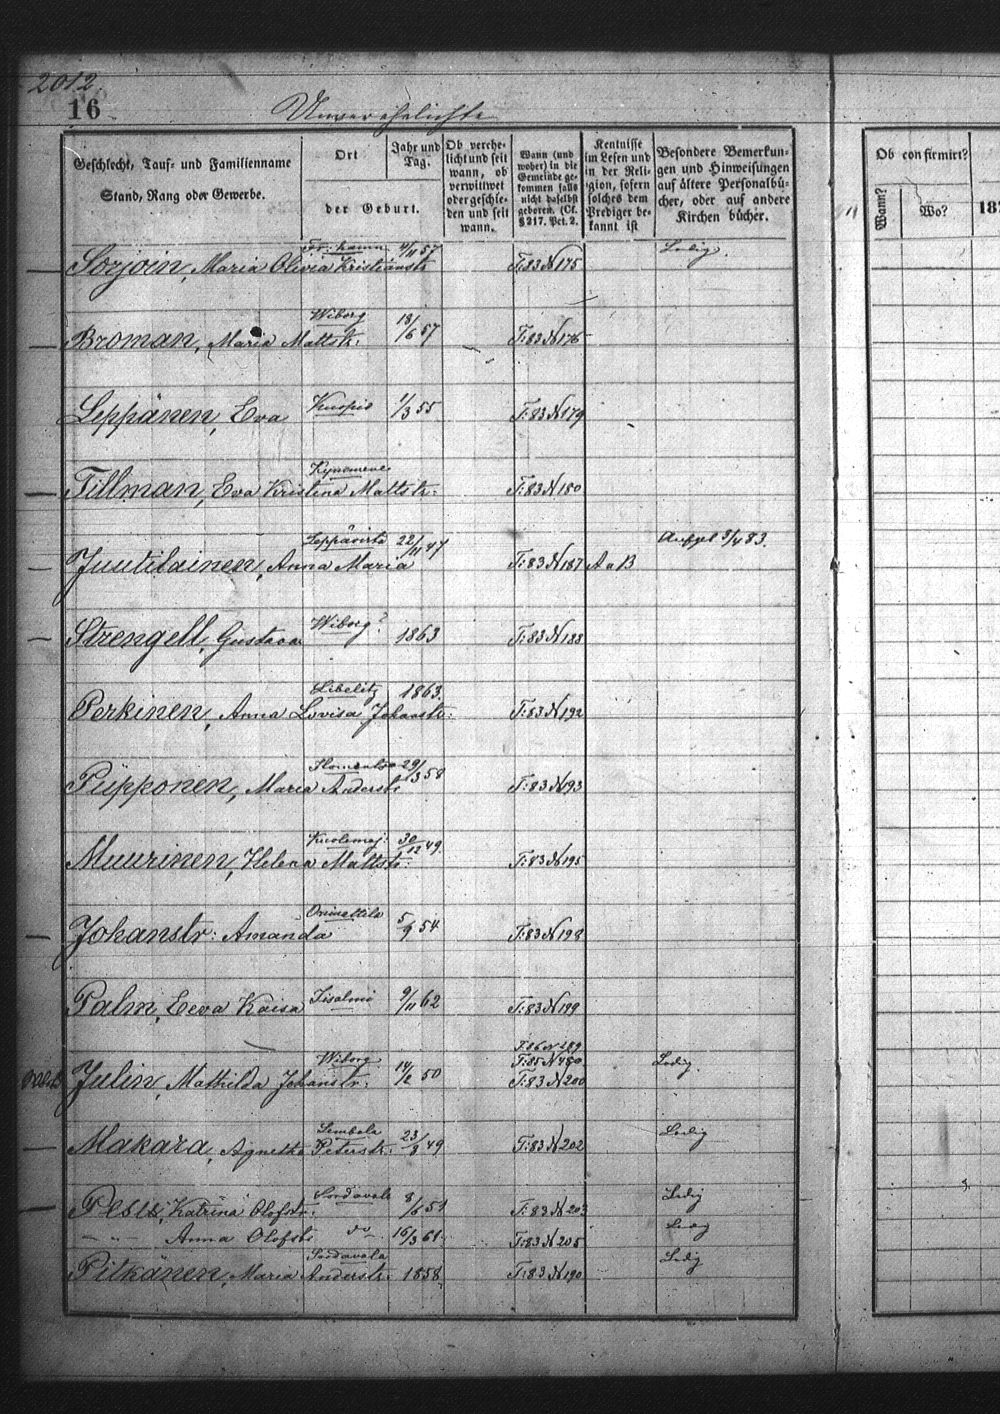 2012.
16
Unverehelichte
Geschlecht, Tauf- und Familienname
Stand, Rang oder Gewerbe.
Ort
der Geburt.
Jahr und
Tag.
Ob verehe-
licht und seit
wann, ob
verwitwet
oder geschie-
den und seit
wann.
Wann (und
woher) in die
Gemeinde ge-
kommen falls
nicht daselbst
geboren. (Cf.
§ 217. Pct. 2.
Kentnisse
im Lesen und
in der Reli-
gion, sofern
solches dem
Prediger be-
kannt ist
Besondere Bemerkun-
gen und Hinweisungen
auf ältere Personalbü-
cher, oder auf andere
Kirchen bücher.
Ob confirmirt?
Wann?
Wo?
187
Fr: hamn 4/11 57 Ledig.
Sorjoin, Maria Olivia Kristianstr T:83 N 175
Wiborg 18/6 57
Broman, Maria Mattstr: T:83 N 176
Leppänen, Eva Kuopio 1/3 55 T:83 N 179
Kymmene
Tillman, Eva Kristina Mattstr: T:83 N 180
Leppävirta 22/11 47 Aufgel 3/4 83.
Juutilainen, Anna Maria T:83 N 187 A a B
Wiborg?
Strengell, Gustava 1863 T:83 N 188
Libelitz 1863.
Perkinen, Anna Lovisa Johanstr: T:83 N 192
Ilomantso 29/3 58
Püpponen, Maria Anderstr T:83 N 193
Kuolemaj: 30/12 49.
Muurinen, Helena Mattstr: T:83 N 195
Orimattila 5/9 54
Johanstr: Amanda T:83 N 198
Palm, Eeva Kaisa Iisalmi 9/11 62 T:83 N 199
T:86 N 289
Wiborg 14/2 50 T:85 N 480 Ledig.
Julin, Mathilda Johanstr: T:83 N 200
Sembola 23/3 49 Ledig
Makara, Agnetha Peterstr: T:83 N 202
Sordavala 8/6 51 Ledig
Pesu, Katrina Olofstr: T:83 N 203
-"- Anna Olofstr do 16/3 61. T:83 N 205 Ledig
Sordavala Ledig
Pitkänen, Maria Anderstr: 1858. T:83 N 190